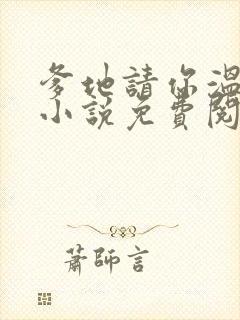 爹地請你溫
小說免費閱
蕭師言